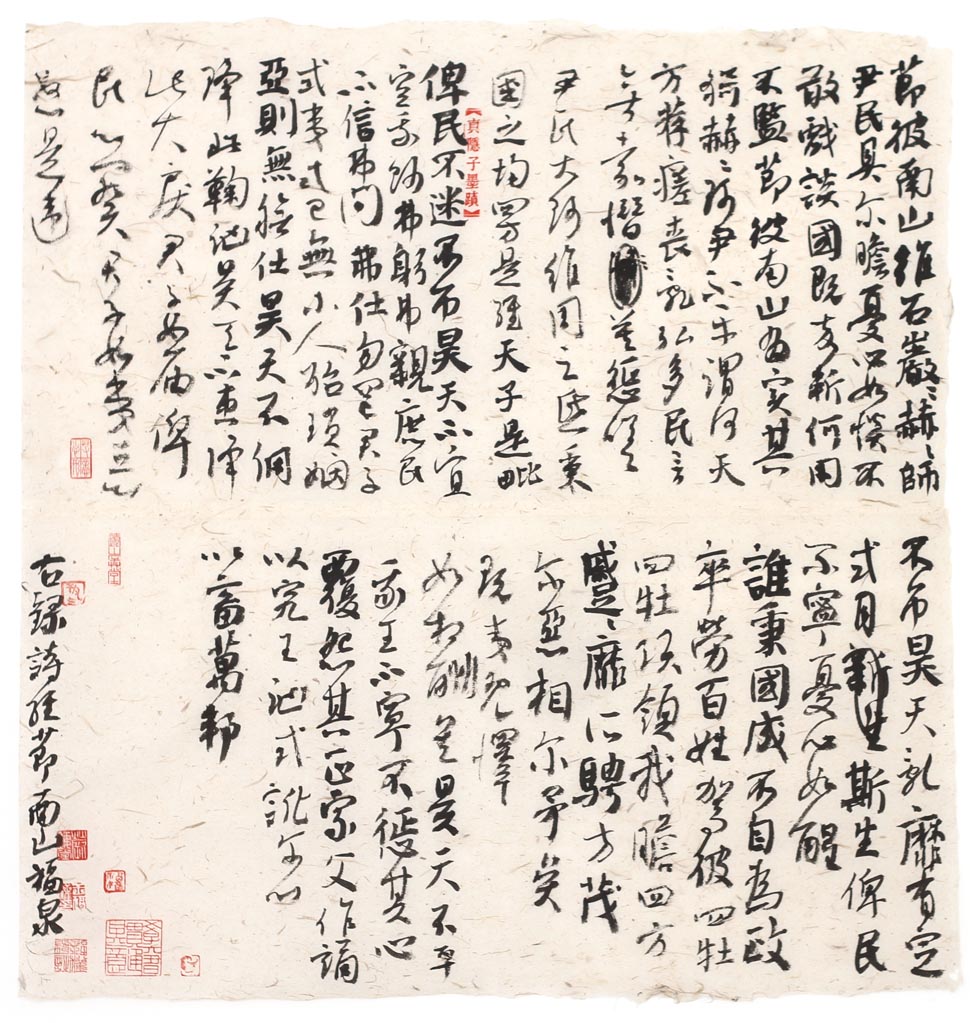 節彼南山維石巖〻赫〻師
尹民具尔瞻憂心如惔不
敢戲談國既卒斬何用
不監節彼南山有實其
猗赫〻師尹不平謂何天
方薦瘥喪亂弘多民言
嘉憯莫懲嗟
尹氏大師維周之氐秉
國之均四方是維天子是毗
【真隱子墨蹟】
俾民不迷不弔昊天不宜
空我師弗躬弗親庶民
不信弗問弗仕勿罔君子
式夷式已無小人殆瑣姻
亞則無膴仕昊天不傭
降此鞠訩昊天不惠降
此大戾君子如屆俾
民心闋君子如夷惡
怒是違
不弔昊天亂靡有定
式月斯生斯生俾民
不寧憂心如酲
誰秉國成不自為政
卒勞百姓駕彼四牡
四牡項領我瞻四方
蹙〻靡所騁方茂
尔惡相尔矛矣
既夷既懌
如相酬矣昊天不平
我王不寧不懲其心
覆怨其正家父作誦
以究王訩式訛尔心
以畜萬邦
右錄詩經節南山福泉